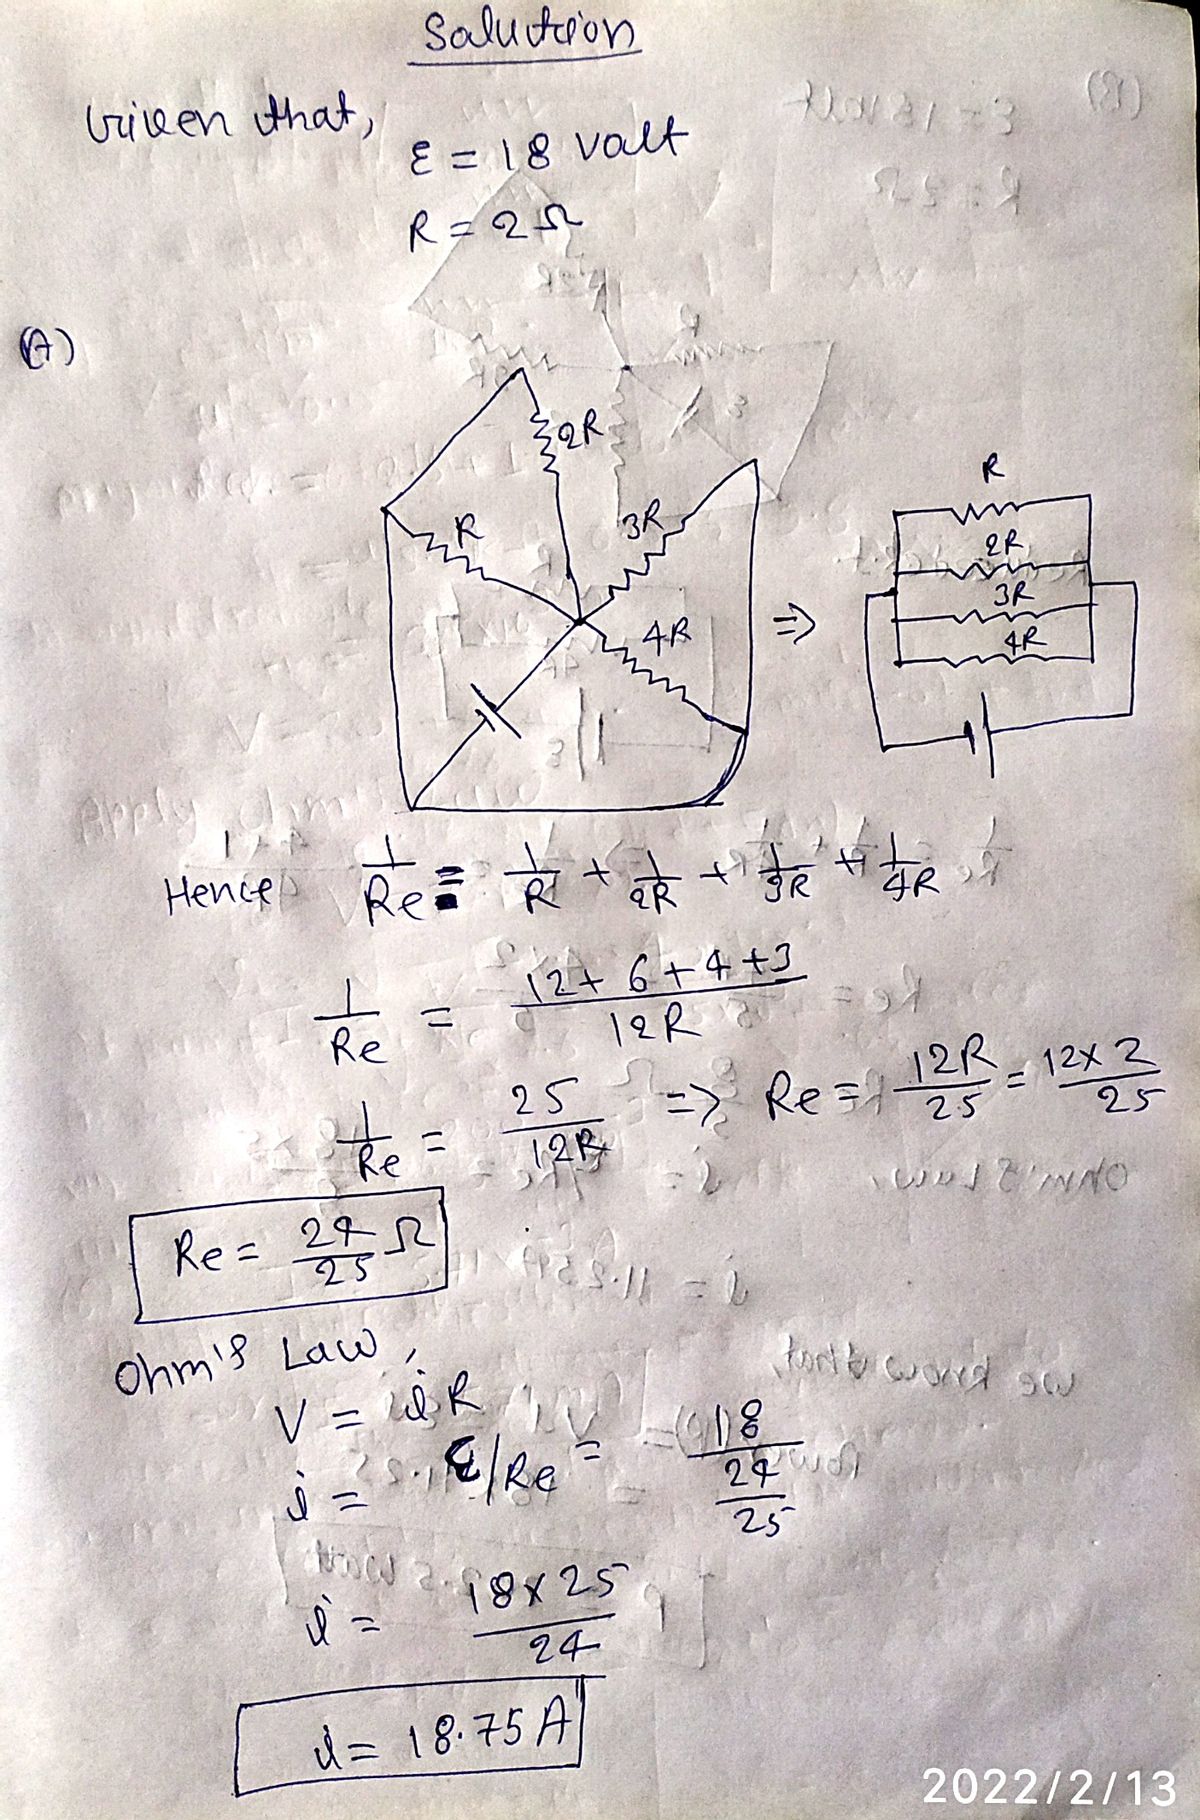 Solution
Given that,
ε = 18 volt
R = 2Ω
(A)
2R
R
3R
4R
⇒
R
2R
3R
4R
Hence 1/Re = 1/R + 1/2R + 1/3R + 1/4R
1/Re = 12+6+4+3/12R
1/Re = 25/12R ⇒ Re = 12R/25 = 12×2/25
Re = 24/25 Ω
Ohm's Law,
V = iR
i = ε/Re = 18/24/25
i = 18×25/24
i = 18.75A
2022/2/13